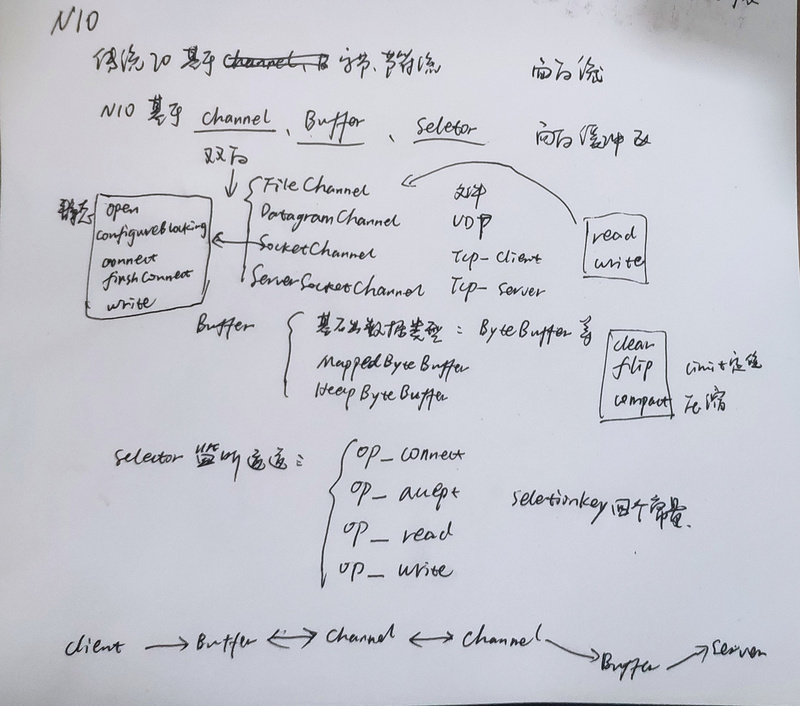 NIO
传统IO 基于 字节、字符流 面向流
NIO 基于 Channel、Buffer、Seletor 面向缓冲区
双向
FileChannel 文件
DatagramChannel UDP
SocketChannel Tcp-Client
ServerSocketChannel Tcp-Server
read
write
open
configureBlocking
connect
finshConnect
write
Buffer 基础数据类型: ByteBuffer等
MappedByteBuffer
HeapByteBuffer
clear
flip limit
compact 压缩
Selector 监听通道:
op_connect
op_accept
op_read
op_write
Seletionkey四个常量
Client → Buffer ↔ Channel ↔ Channel → Buffer → Server